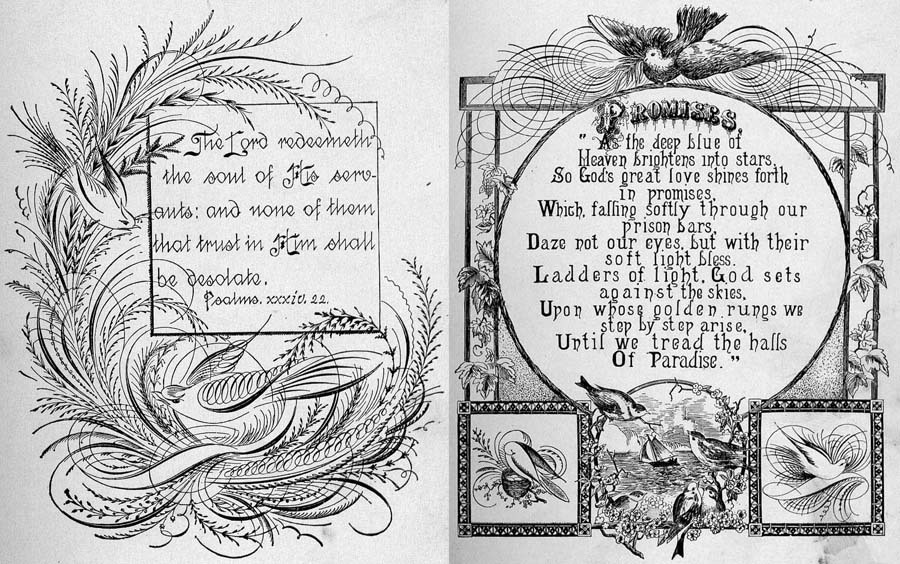 The Lord redeemeth
the soul of His serv-
ants: and none of them
that trust in Him shall
be desolate.
Psalms. xxxiv. 22.
Promises.
"As the deep blue of
Heaven brightens into stars,
So God's great love shines forth
in promises,
Which, falling softly through our
prison bars,
Daze not our eyes, but with their
soft light bless.
Ladders of light, God sets
against the skies,
Upon whose golden rungs we
step by step arise,
Until we tread the halls
Of Paradise."